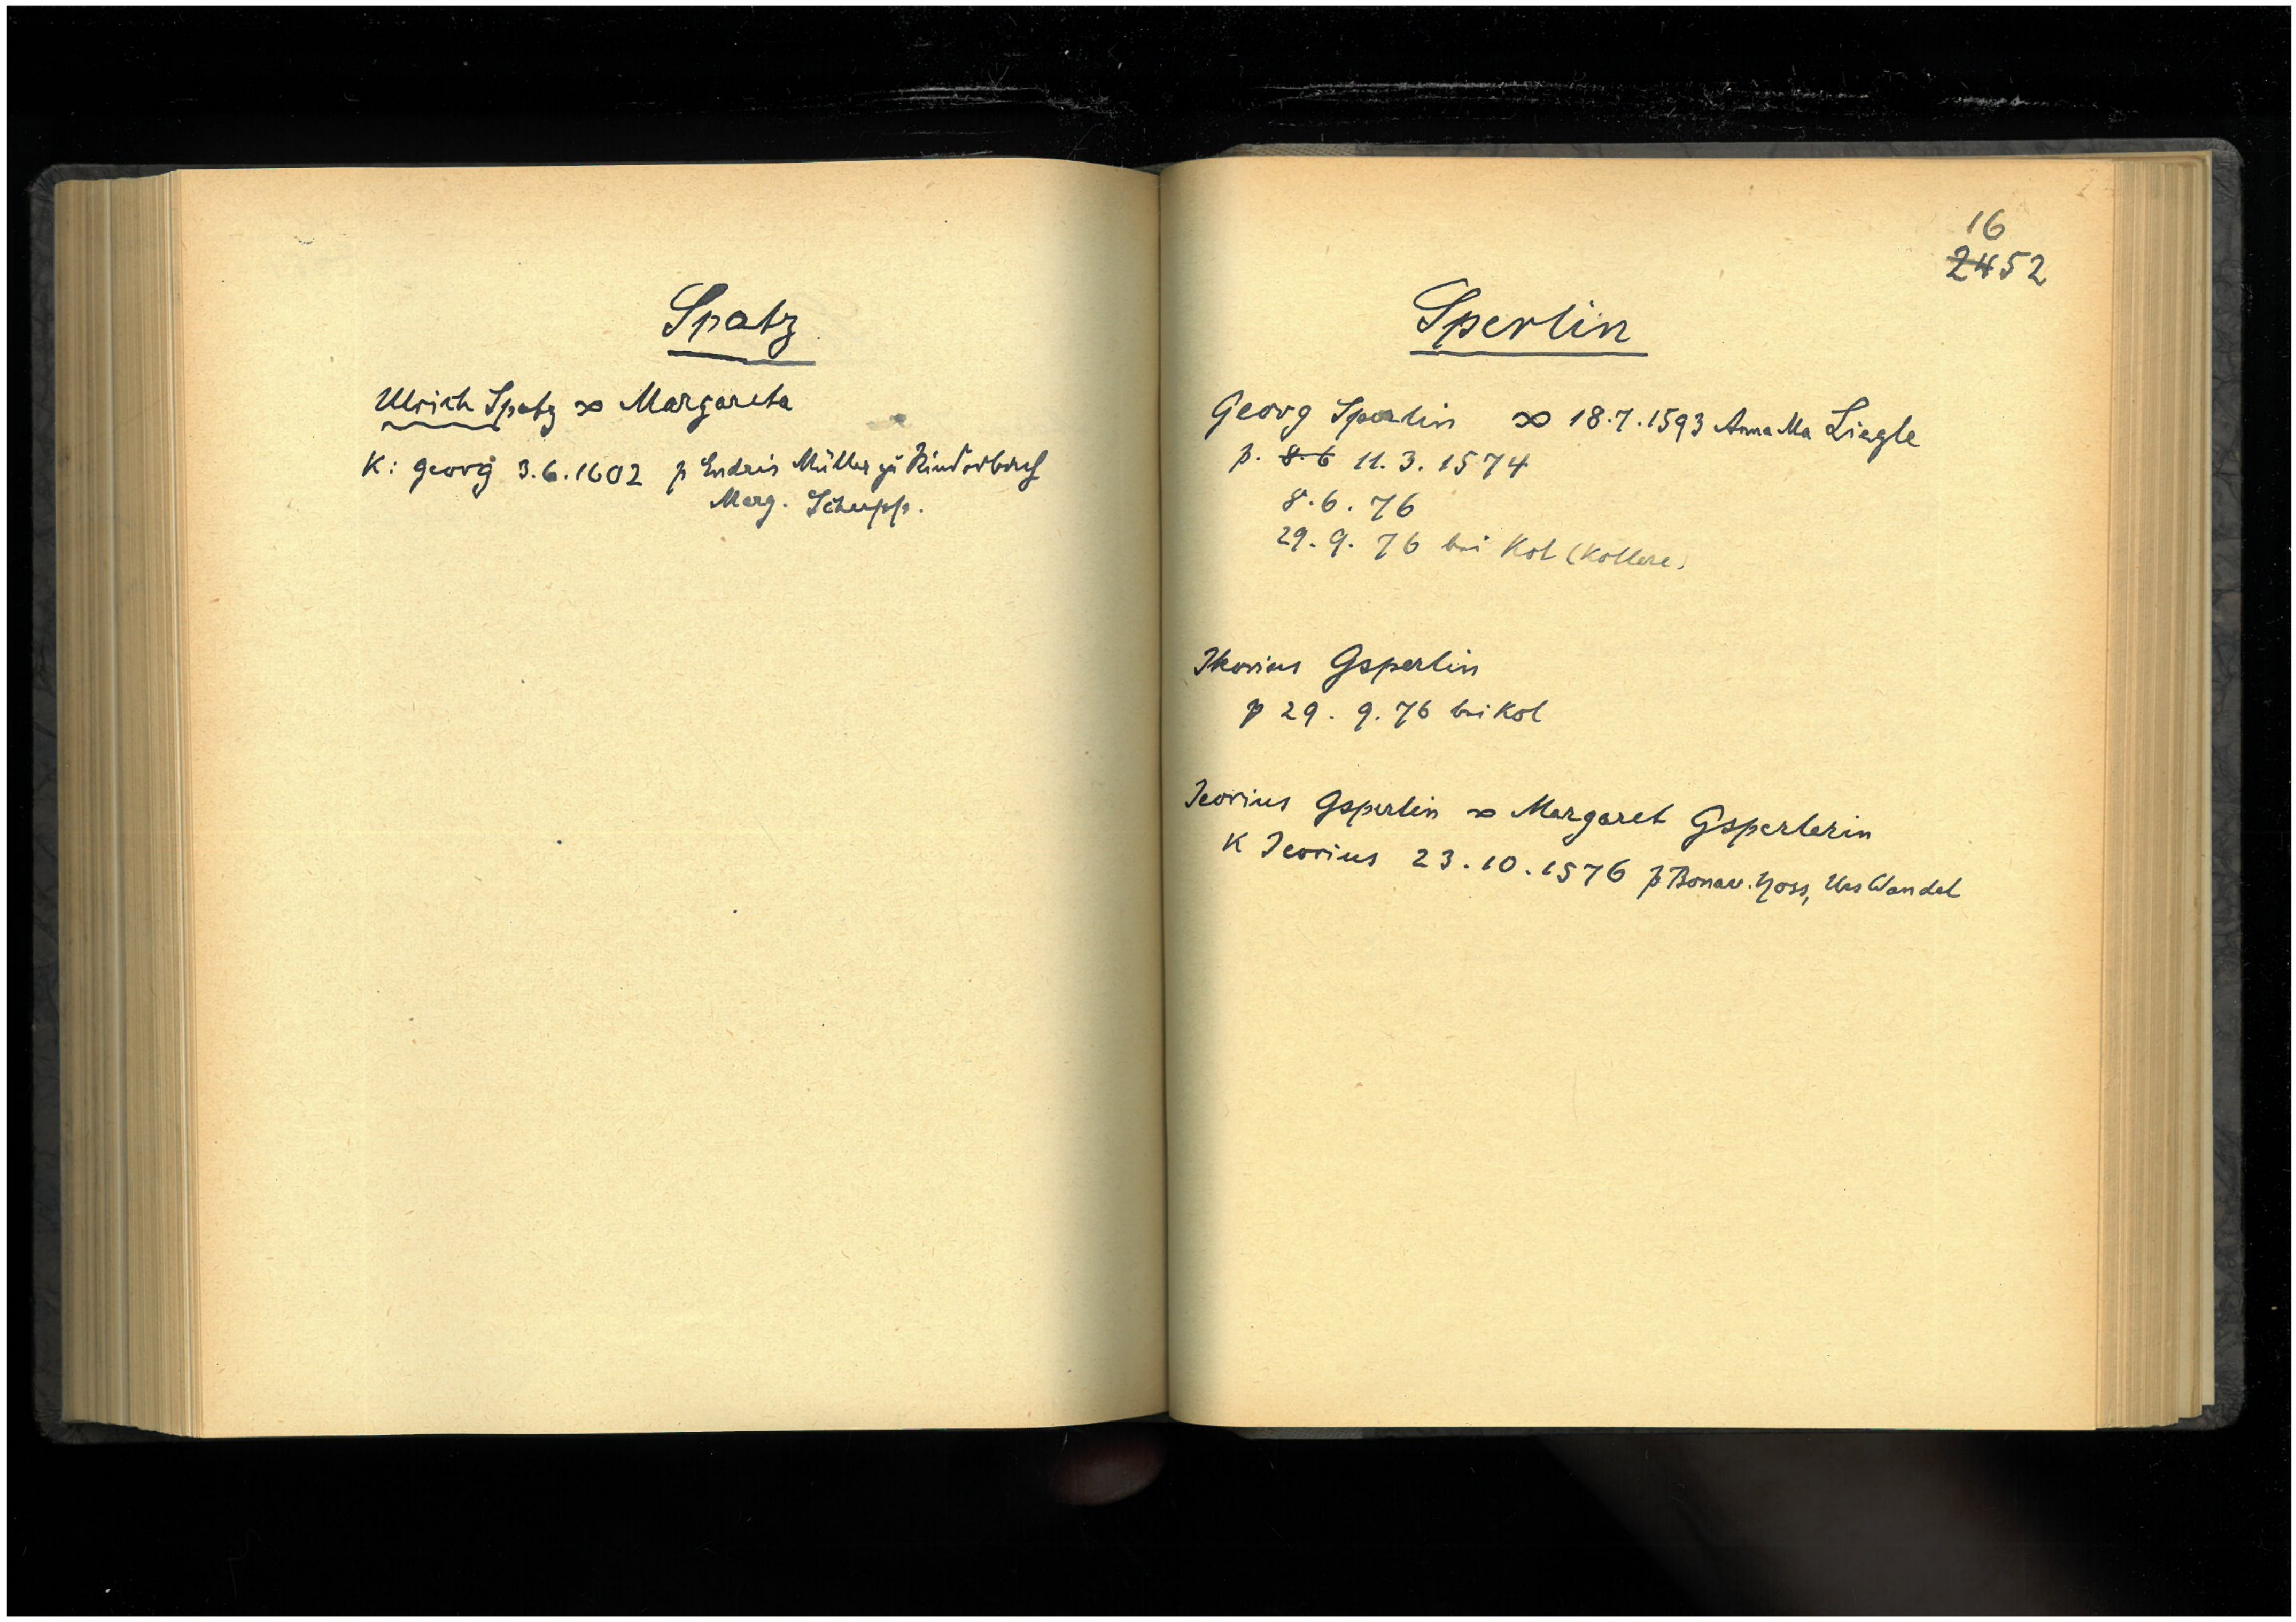 Spatz
Ulrich Spatz ∞ Margareta
K: Georg 3.6.1602 p Endris Müller zu
Marg. Schupp.
16
2452
Sperlin
Georg Sperlin ∞ 18.7.1593 Anna Ma Liegle
p. 8.6 11.3.1574
8.6.76
29.9.76 bei Kol (Kollere)
Jkorius Gsperlin
p 29.9.76 bei Kol
Jeorius Gsperlin ∞ Margaret Gsperlerin
K Jeorius 23.10.1576 p Bonav. Hoss, Urs Wandel